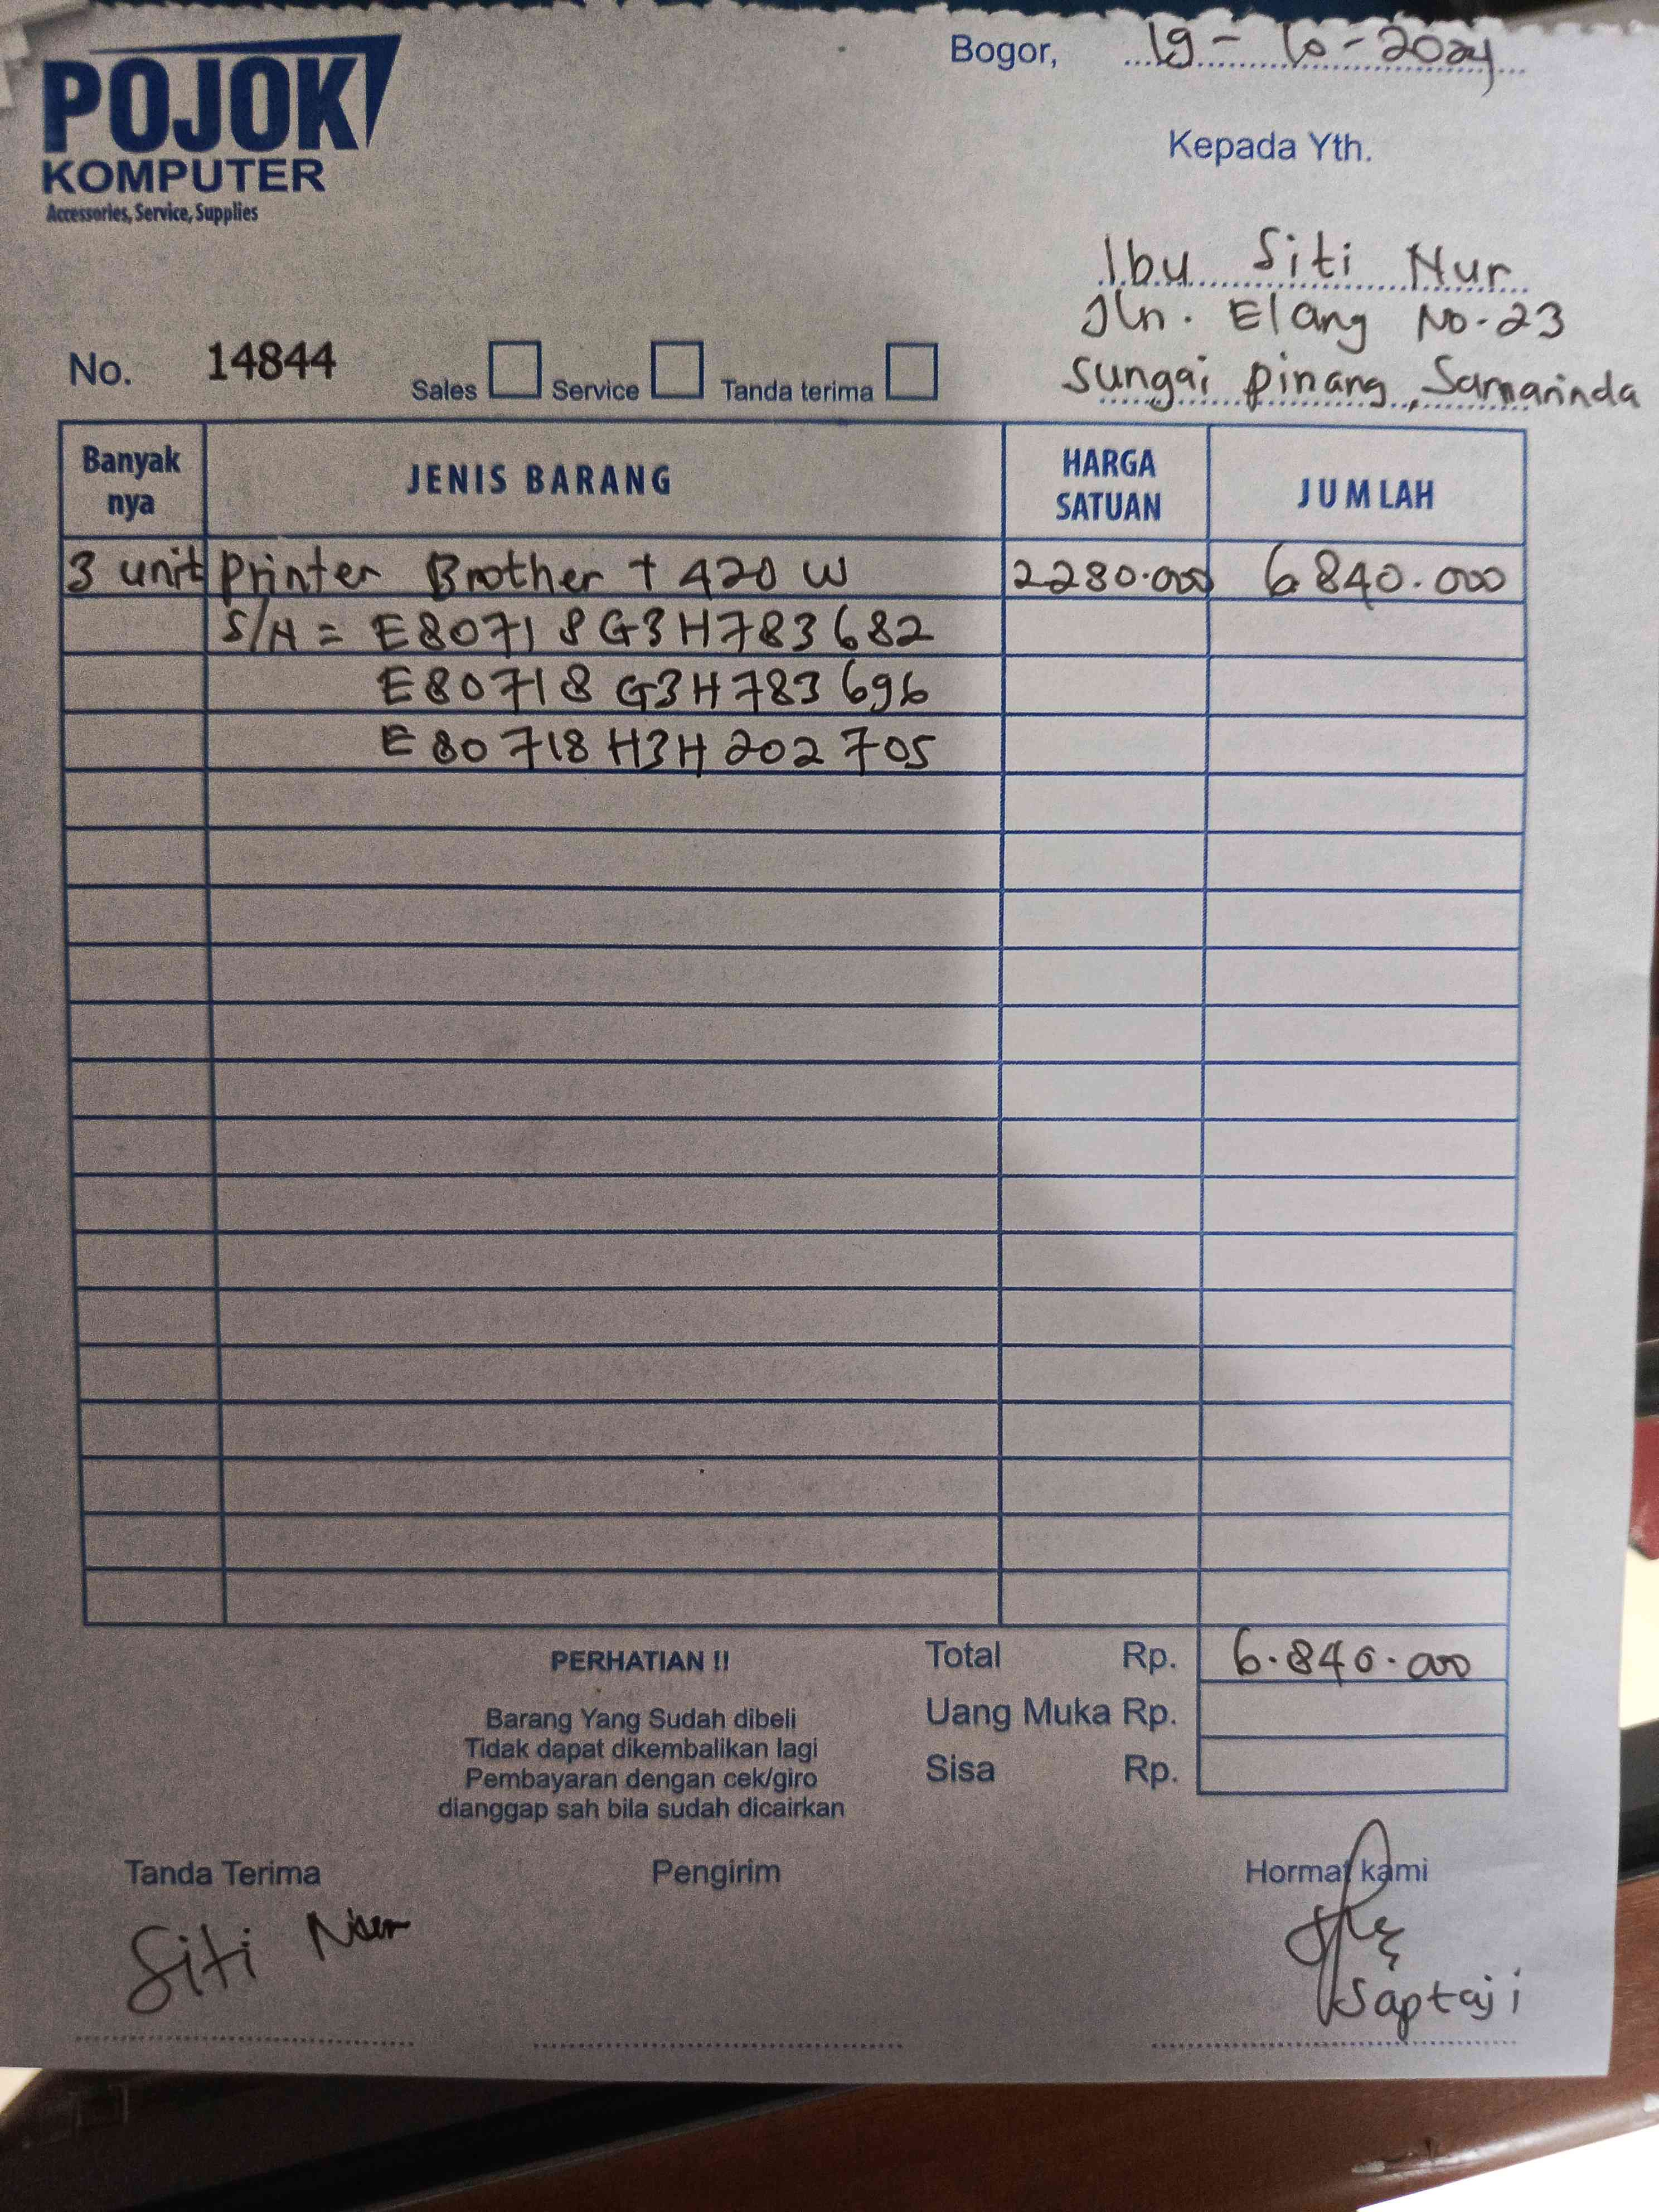 POJOK
KOMPUTER
Accessories, Service, Supplies
Bogor, 19-10-2024
Kepada Yth.
Ibu Siti Nur
Jln. Elang No-23
Sungai pinang, Samarinda
No. 14844 Sales Service Tanda terima
Banyak nya JENIS BARANG HARGA SATUAN JUMLAH
3 unit Printer Brother T 420 W 2280.000 6.840.000
S/N = E80718G3H783682
E80718G3H783696
E80718H3H202705
PERHATIAN !!
Barang Yang Sudah dibeli
Tidak dapat dikembalikan lagi
Pembayaran dengan cek/giro
dianggap sah bila sudah dicairkan
Total Rp. 6.840.000
Uang Muka Rp.
Sisa Rp.
Tanda Terima Pengirim Hormat kami
Siti
Saptaji